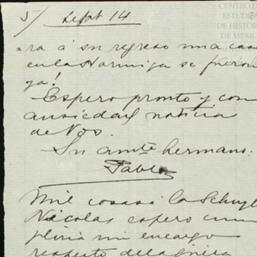 5/ Sefbt 14
CENTRO DE
ESTUDIOS
DE HISTORIA
DE MEXICO
ra á su regreso una casa
en la Hormiga se fueron
ya!
Espero pronto y con
ansiedad noticia
de Vos.
Su amte hermano.
Pablo
Mil cosas á la Schuyl
Nicolas espero cum
pliria mi encargo
respecto de la